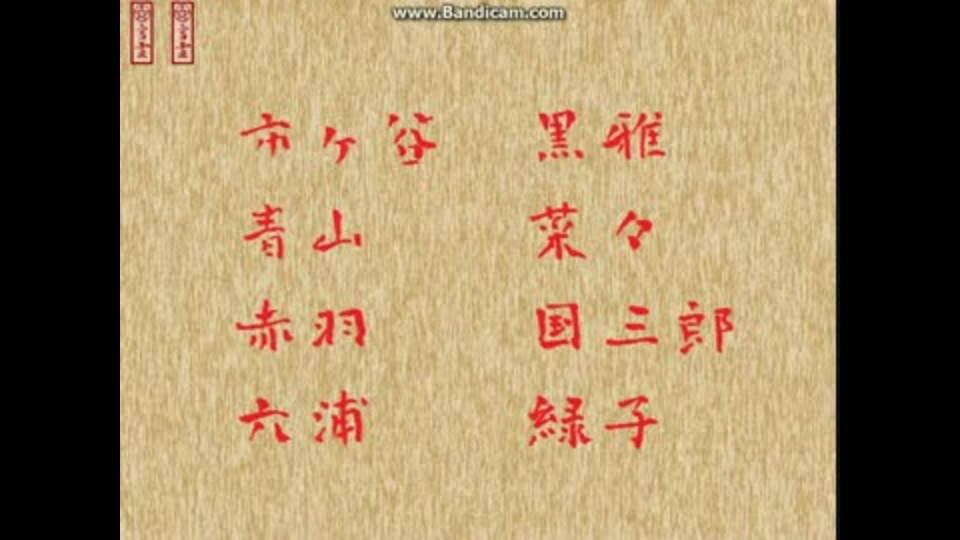 www.Bandicam.com
市ヶ谷 黒雅
青山 菜々
赤羽 国三郎
六浦 緑子